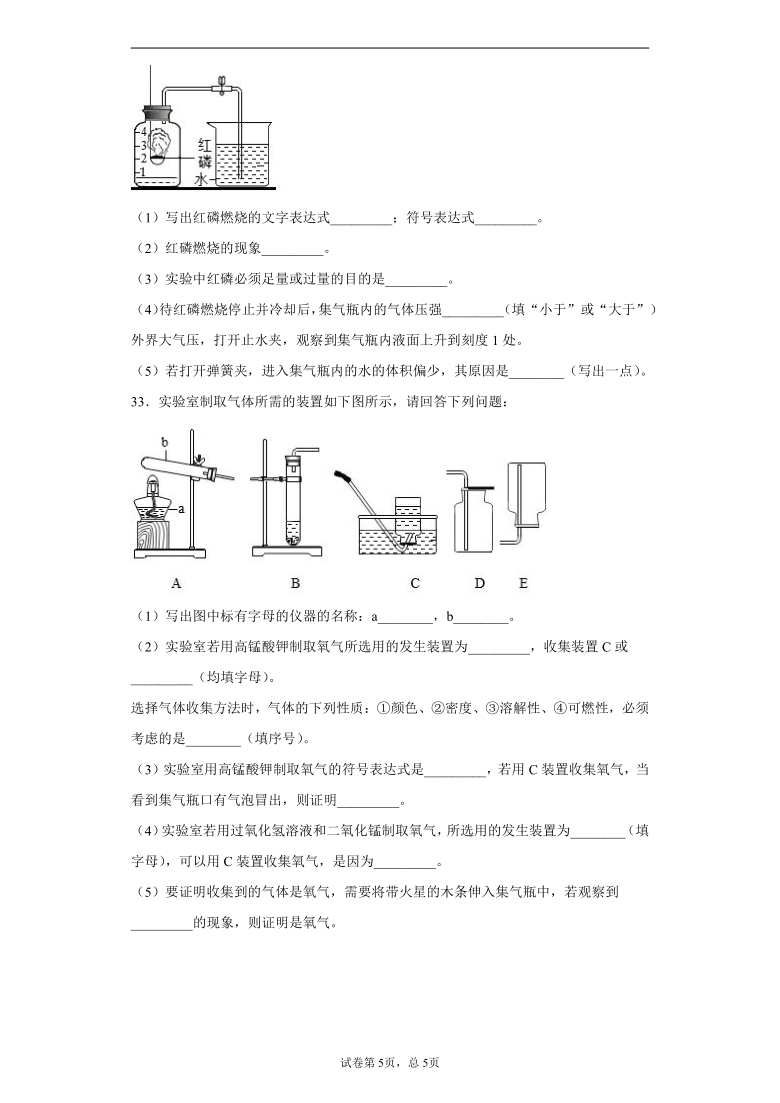 4
3
2
1
红
磷
水
（1）写出红磷燃烧的文字表达式_________；符号表达式_________。
（2）红磷燃烧的现象_________。
（3）实验中红磷必须足量或过量的目的是_________。
（4）待红磷燃烧停止并冷却后，集气瓶内的气体压强_________（填“小于”或“大于”）
外界大气压，打开止水夹，观察到集气瓶内液面上升到刻度 1 处。
（5）若打开弹簧夹，进入集气瓶内的水的体积偏少，其原因是________（写出一点）。
33．实验室制取气体所需的装置如下图所示，请回答下列问题：
b
a
A B C D E
（1）写出图中标有字母的仪器的名称：a________，b________。
（2）实验室若用高锰酸钾制取氧气所选用的发生装置为_________，收集装置 C 或
_________（均填字母）。
选择气体收集方法时，气体的下列性质：①颜色、②密度、③溶解性、④可燃性，必须
考虑的是________（填序号）。
（3）实验室用高锰酸钾制取氧气的符号表达式是_________，若用 C 装置收集氧气，当
看到集气瓶口有气泡冒出，则证明_________。
（4）实验室若用过氧化氢溶液和二氧化锰制取氧气，所选用的发生装置为________（填
字母），可以用 C 装置收集氧气，是因为_________。
（5）要证明收集到的气体是氧气，需要将带火星的木条伸入集气瓶中，若观察到
_________的现象，则证明是氧气。
试卷第 5页，总 5页